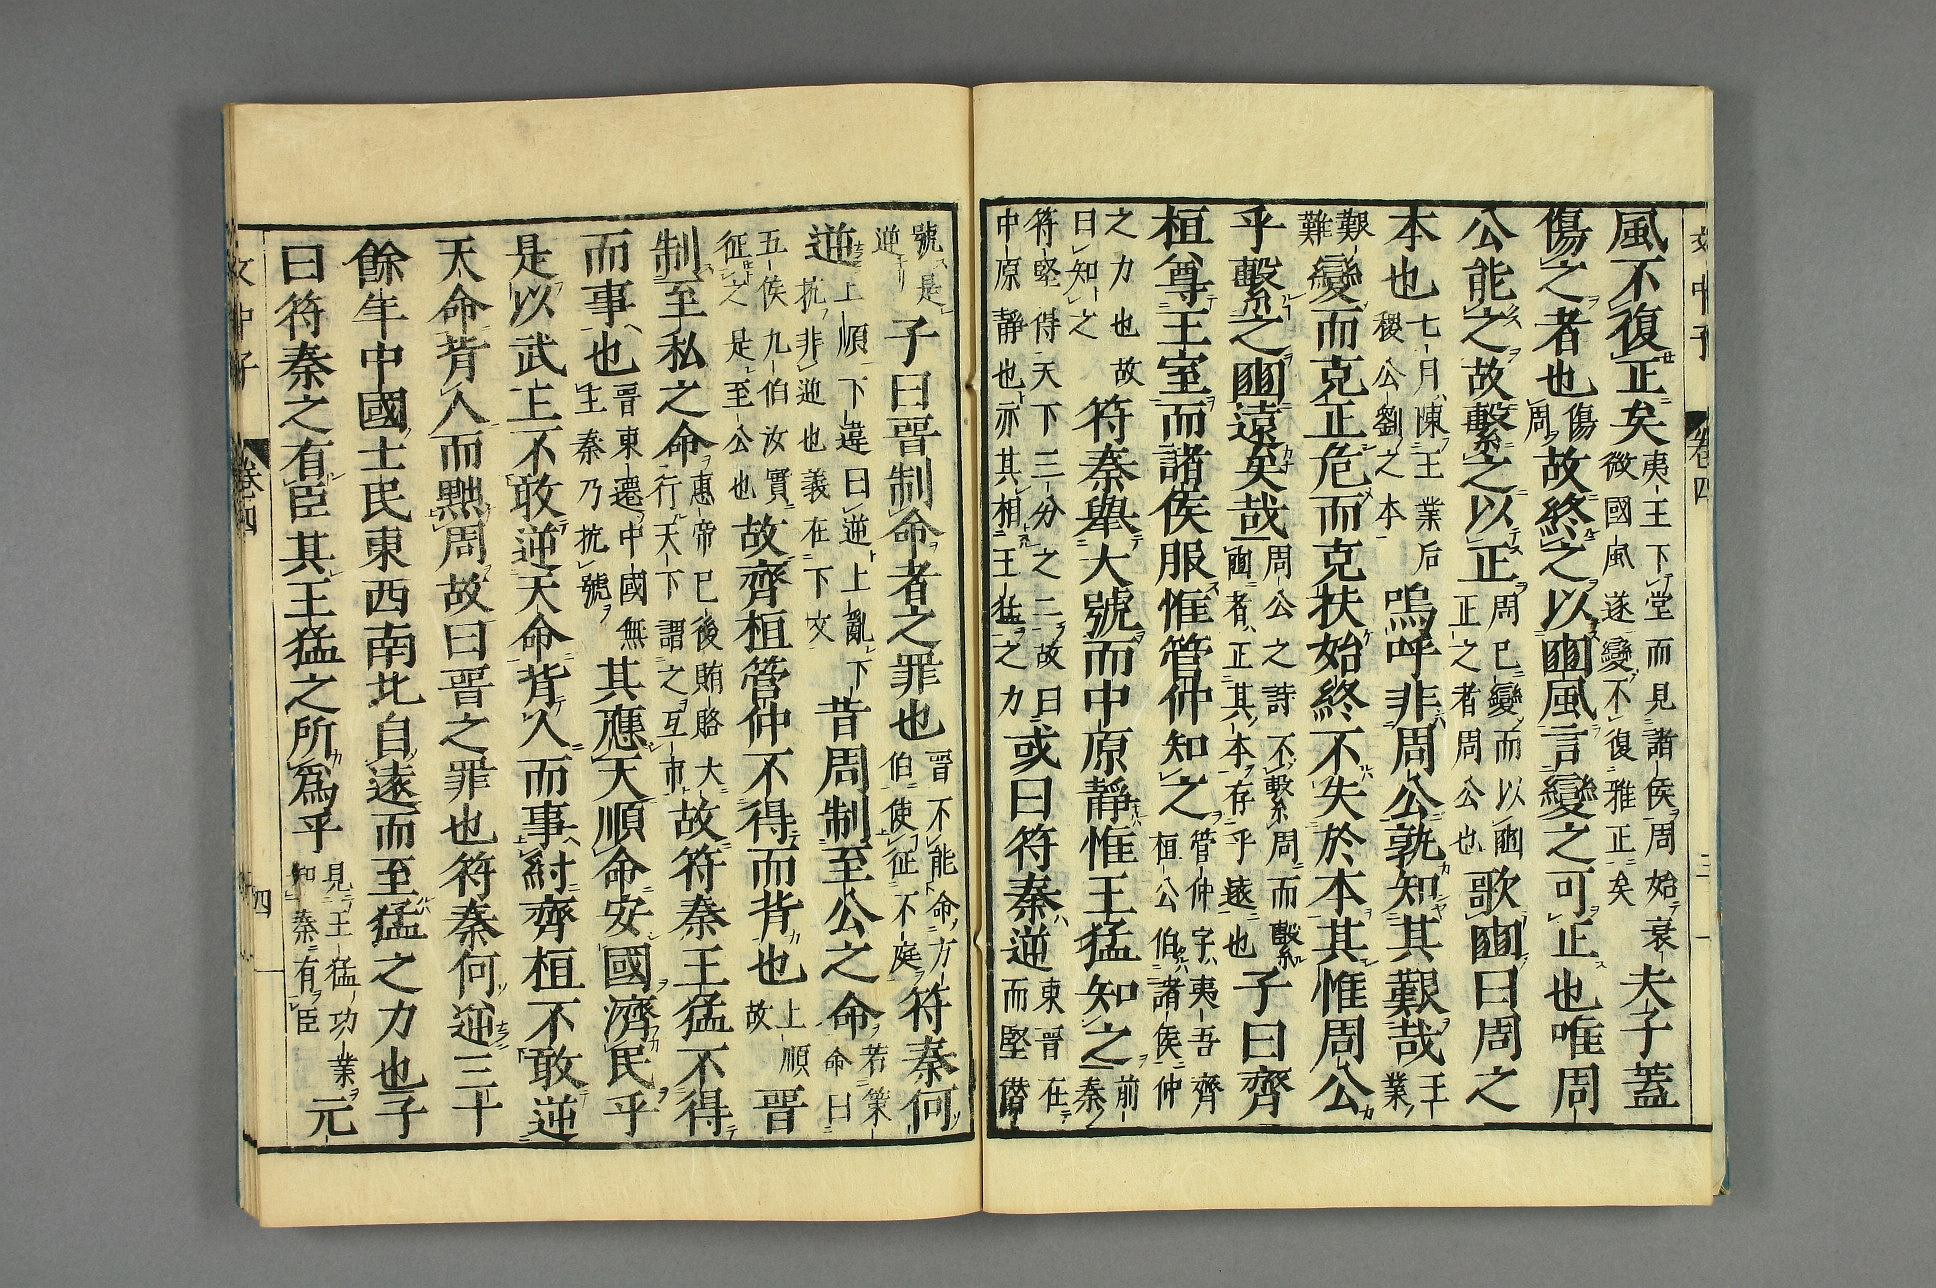 風不復正矣夷王下堂而見諸侯周始衰微國風遂變不復雅正矣夫子蓋
傷之者也傷周故終之以豳風言變之可正也唯周
公能之故繫之以正周已變而以豳正之者周公也歌豳曰周之
本也七月陳王業后稷公劉之本嗚呼非周公孰知其艱哉王業
艱難變而克正危而克扶始終不失於本其惟周公
乎繫之豳遠矣哉周公之詩不繫周而繫豳者正其本存乎遠也子曰齊
桓尊王室而諸侯服惟管仲知之管仲字夷吾齊桓公伯諸侯仲
之力也故曰知之符秦舉大號而中原靜惟王猛知之前秦
符堅得天下三分之二故曰中原靜也亦其相王猛之力或曰符秦逆東晉在而堅僣
號是逆子曰晉制命者之罪也晉不能命方伯使征不庭符秦何
逆上順下違曰逆上亂下抗非逆也義在下文昔周制至公之命若策命曰
五侯九伯汝實征之是至公也故齊桓管仲不得而背也上順故晉
制至私之命惠帝已後賄賂大行天下謂之互市故符秦王猛不得
而事也晉東遷中國無主秦乃抗號其應天順命安國濟民乎
是以武王不敢逆天命背人而事紂齊桓不敢逆
天命背人而黜周故曰晉之罪也符秦何逆三十
餘年中國士民東西南北自遠而至猛之力也子
曰符秦之有臣其王猛之所爲乎見王猛功業知秦有臣元
文中子
卷四
三
文中子
卷四
四